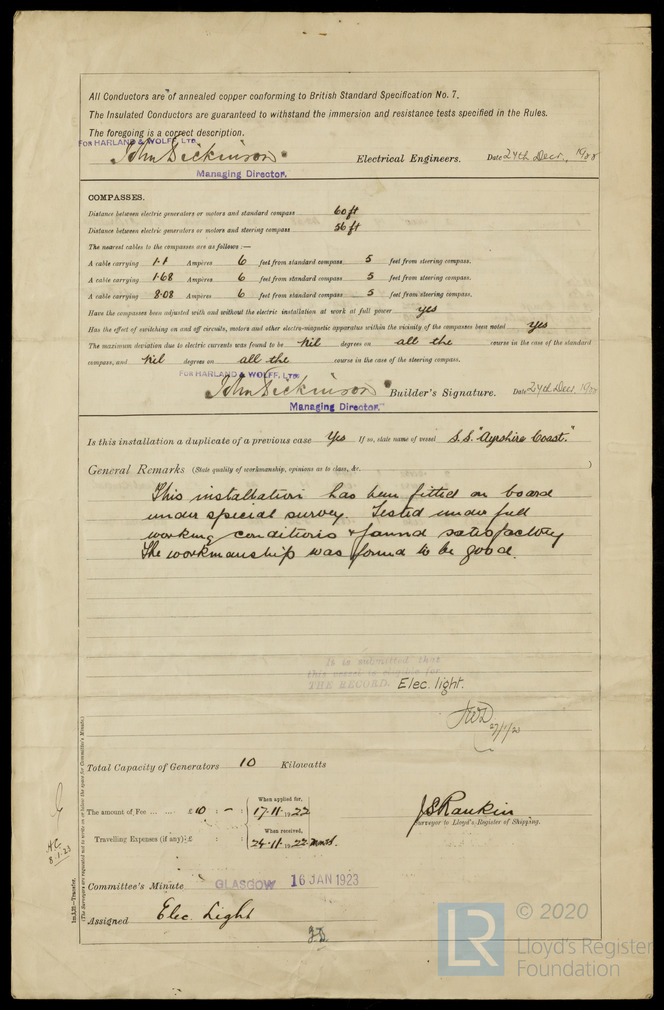 All Conductors are of annealed copper conforming to British Standard Specification No. 7.
The Insulated Conductors are guaranteed to withstand the immersion and resistance tests specified in the Rules.
The foregoing is a correct description.
FOR HARLAND & WOLFF, LTD.
John Dickinson Electrical Engineers. Date 24th Decr., 19
Managing Director.
COMPASSES.
Distance between electric generators or motors and standard compass 60 ft
Distance between electric generators or motors and steering compass 56 ft
The nearest cables to the compasses are as follows :—
A cable carrying 1.1 Ampères 6 feet from standard compass 5 feet from steering compass.
A cable carrying 1.68 Ampères 6 feet from standard compass 5 feet from steering compass.
A cable carrying 8.08 Ampères 6 feet from standard compass 5 feet from steering compass.
Have the compasses been adjusted with and without the electric installation at work at full power yes
Has the effect of switching on and off circuits, motors and other electro-magnetic apparatus within the vicinity of the compasses been noted yes
The maximum deviation due to electric currents was found to be Nil degrees on all the course in the case of the standard
compass, and Nil degrees on all the course in the case of the steering compass.
FOR HARLAND & WOLFF, LTD.
John Dickinson Builder's Signature. Date 24th Decr. 19
Managing Director.
Is this installation a duplicate of a previous case Yes If so, state name of vessel S.S. "Ayrshire Coast."
General Remarks (State quality of workmanship, opinions as to class, &c. )
This installation has been fitted on board
under special survey. Tested under full
working conditions & found satisfactory
The workmanship was found to be good.
It is submitted that
this vessel is eligible for
THE RECORD. Elec. light.
JWD
Total Capacity of Generators 10 Kilowatts
The amount of Fee ... ... £ 10 : - : When applied for, 17.11.1922
Travelling Expenses (if any) £ : : When received, 24.11.1922
J S Rankin
Surveyor to Lloyd's Register of Shipping.
Committee's Minute GLASGOW 16 JAN 1923
Assigned Elec. Light
8.1.23
1m.1.22—Transfer.
(The Surveyors are requested not to write on or below the space for Committee's Minute.)
LR
© 2020
Lloyd's Register
Foundation